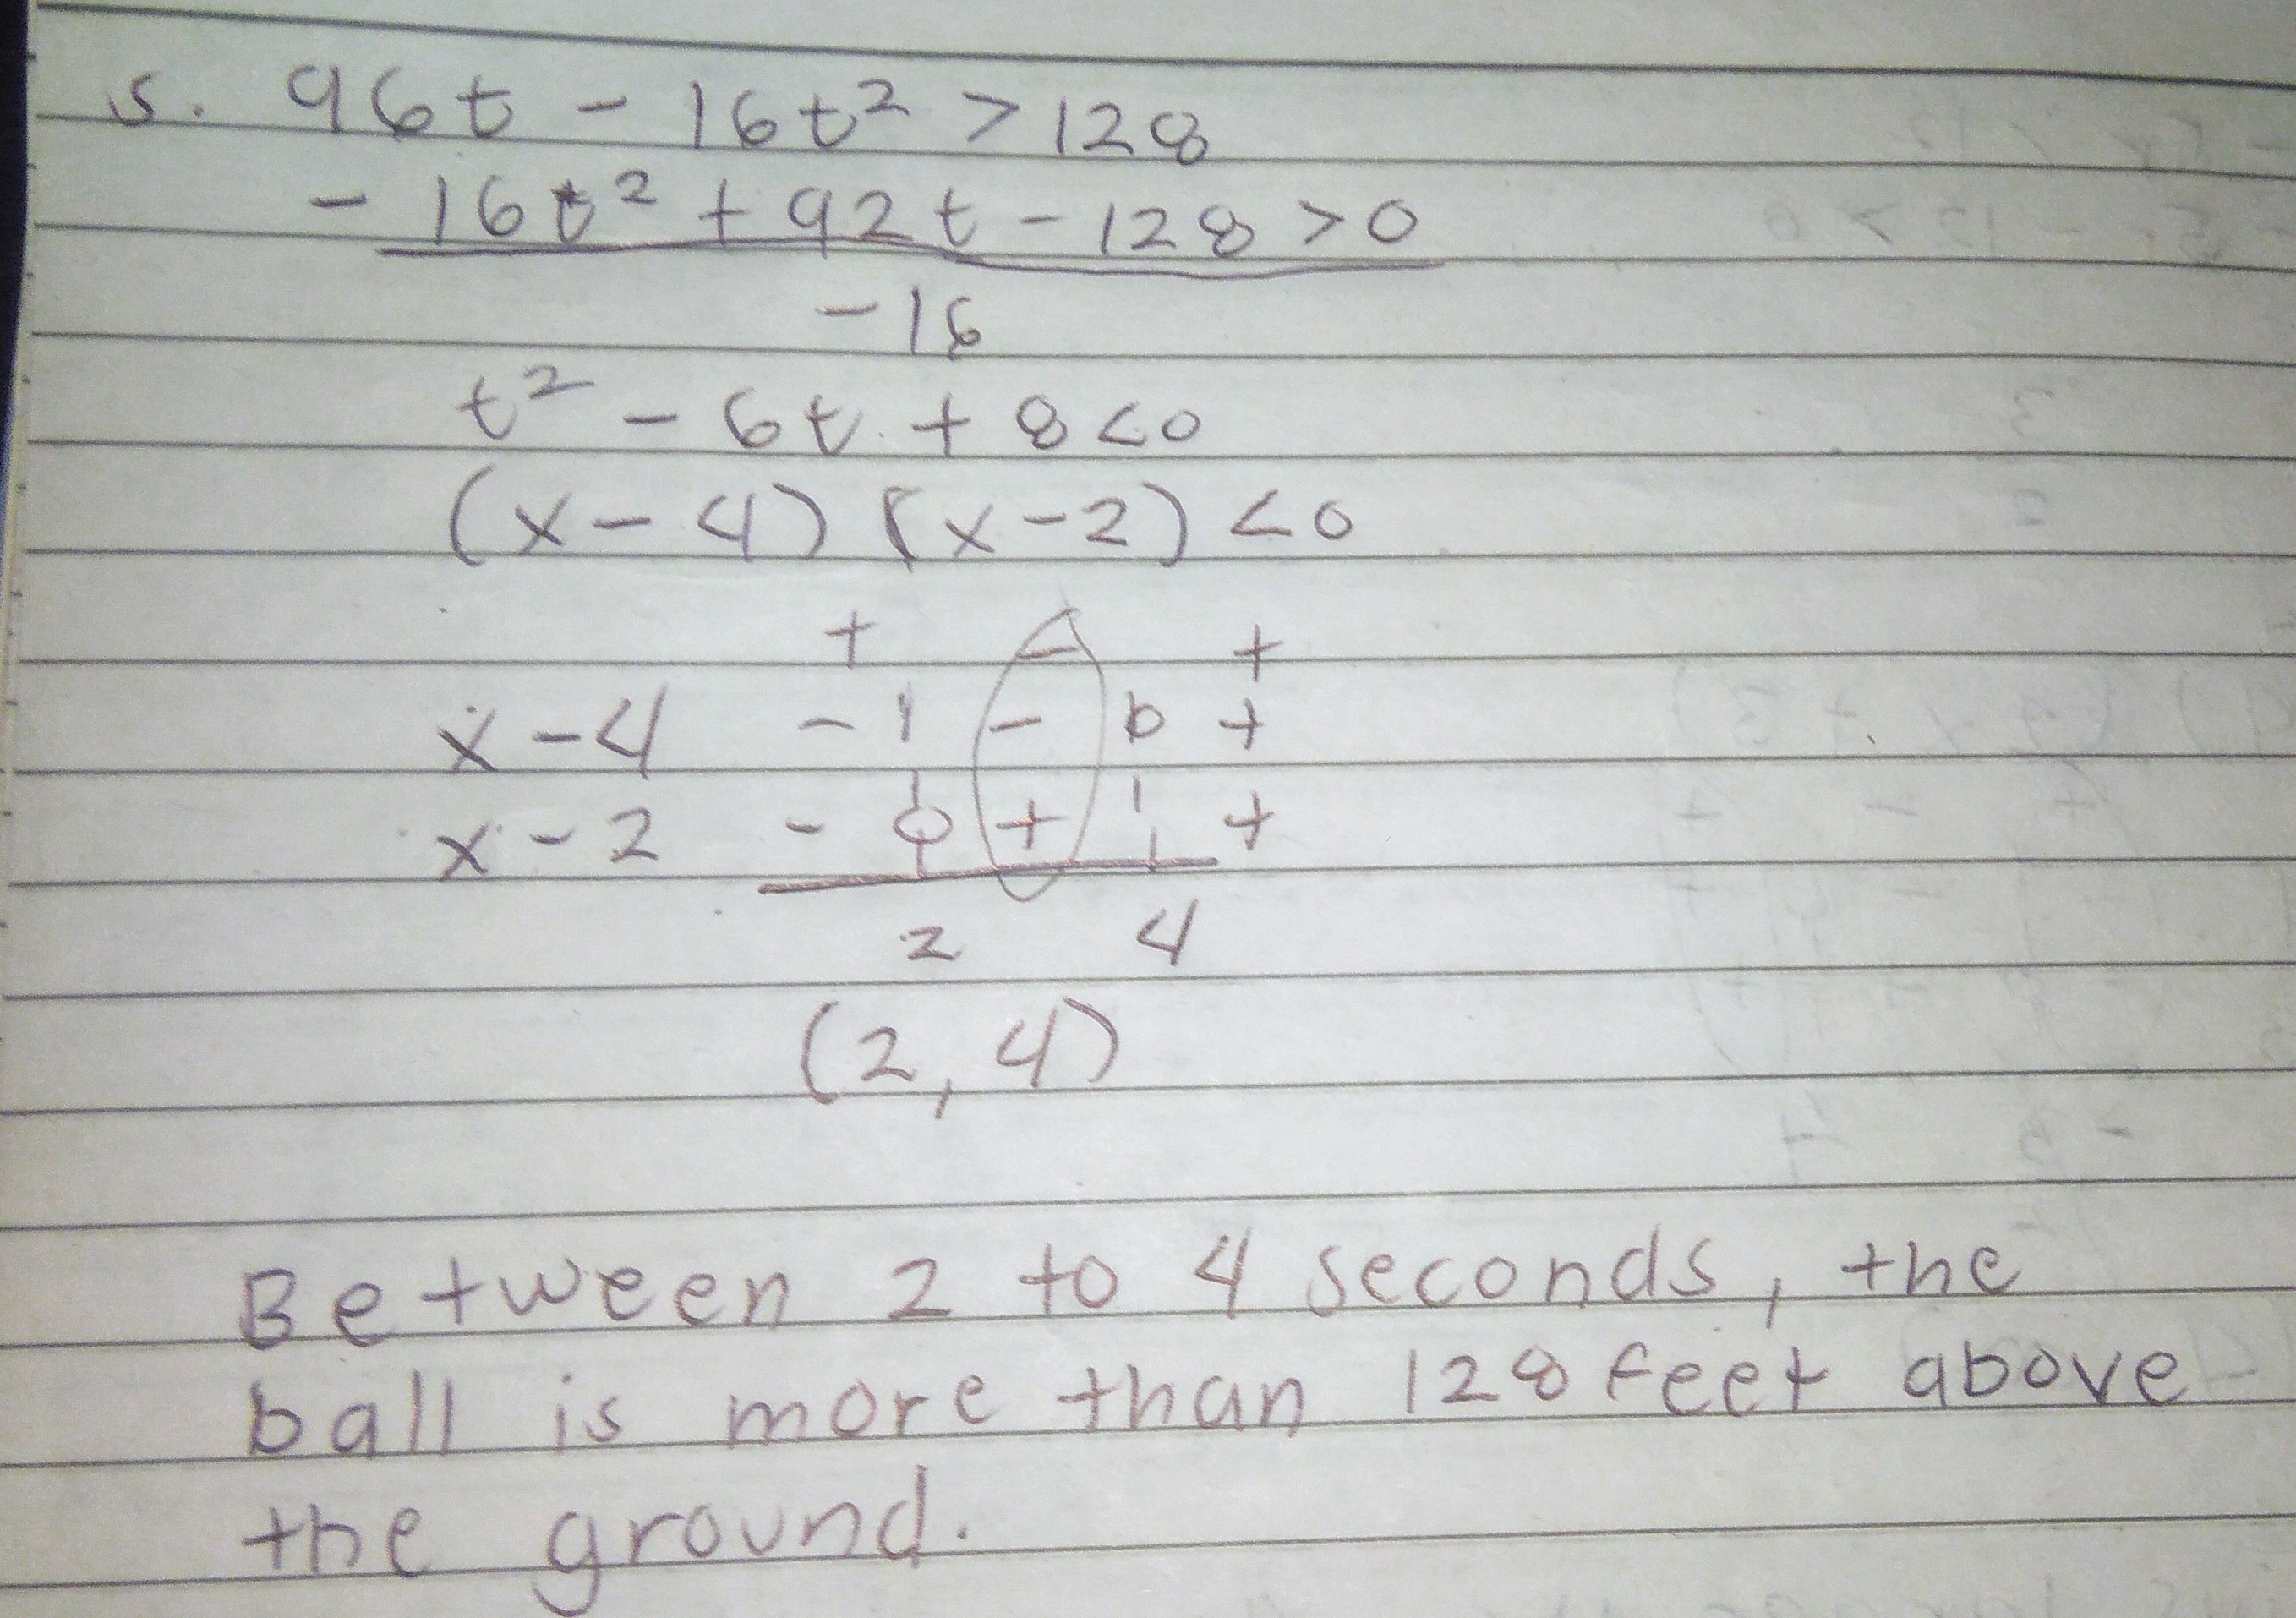 5. 96t - 16t² > 128
- 16t² + 92t - 128 > 0
-16
t² - 6t + 8 < 0
(x - 4) (x - 2) < 0
+ - +
x - 4 - | - 0 +
x - 2 - 0 + | +
2 4
(2, 4)
Between 2 to 4 seconds, the
ball is more than 128 feet above
the ground.